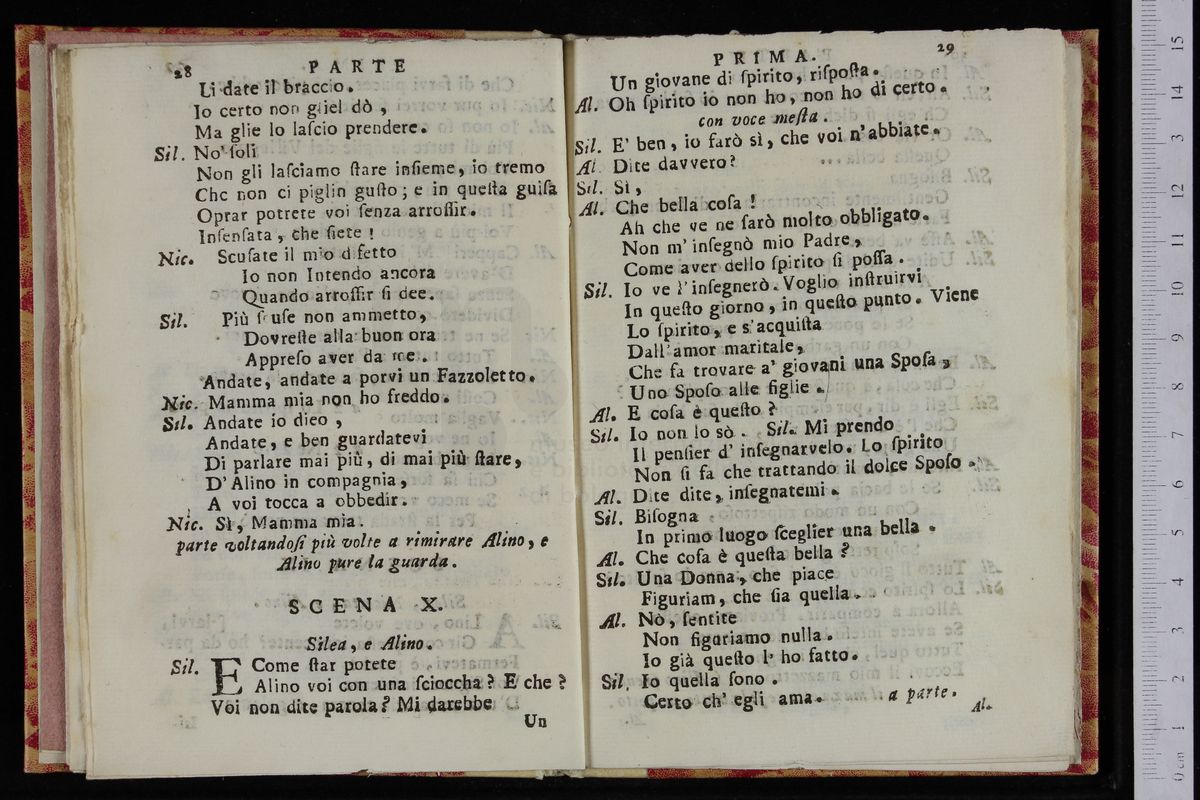 28 PARTE
Li date il braccio.
Io certo non gliel dò,
Ma glie lo laſcio prendere.
Sil. No' ſoli
Non gli laſciamo ſtare inſieme, io tremo
Che non ci piglin guſto; e in queſta guiſa
Oprar potrete voi ſenza arroſſir.
Inſenſata, che ſiete!
Nic. Scuſate il mio difetto
Io non Intendo ancora
Quando arroſſir ſi dee.
Sil. Più ſcuſe non ammetto,
Dovreſte alla buon ora
Appreſo aver da me.
Andate, andate a porvi un Fazzoletto.
Nic. Mamma mia non ho freddo.
Sil. Andate io dieo,
Andate, e ben guardatevi
Di parlare mai più, di mai più ſtare,
D'Alino in compagnia,
A voi tocca a obbedir.
Nic. Sì, Mamma mia.
parte voltandoſi più volte a rimirare Alino, e
Alino pure la guarda.
SCENA X.
Silea, e Alino.
Sil. E Come ſtar potete
Alino voi con una ſcioccha? E che?
Voi non dite parola? Mi darebbe
Un
PRIMA. 29
Un giovane di ſpirito, riſpoſta.
Al. Oh ſpirito io non ho, non ho di certo.
con voce meſta.
Sil. E' ben, io farò sì, che voi n'abbiate.
Al. Dite davvero?
Sil. Sì,
Al. Che bella coſa!
Ah che ve ne ſarò molto obbligato.
Non m'inſegnò mio Padre,
Come aver dello ſpirito ſi poſſa.
Sil. Io ve l'inſegnerò. Voglio inſtruirvi
In queſto giorno, in queſto punto. Viene
Lo ſpirito, e s'acquiſta
Dall'amor maritale,
Che fa trovare a' giovani una Spoſa,
Uno Spoſo alle figlie.
Al. E coſa è queſto?
Sil. Io non lo sò. Sil. Mi prendo
Il penſier d'inſegnarvelo. Lo ſpirito
Non ſi fà che trattando il dolce Spoſo.
Al. Dite dite, inſegnatemi.
Sil. Biſogna
In primo luogo ſceglier una bella.
Al. Che coſa è queſta bella?
Sil. Una Donna, che piace
Figuriam, che ſia quella.
Al. Nò, ſentite
Non figuriamo nulla.
Io già queſto l'ho fatto.
Sil. Io quella ſono.
Certo ch'egli ama. a parte.
Al.